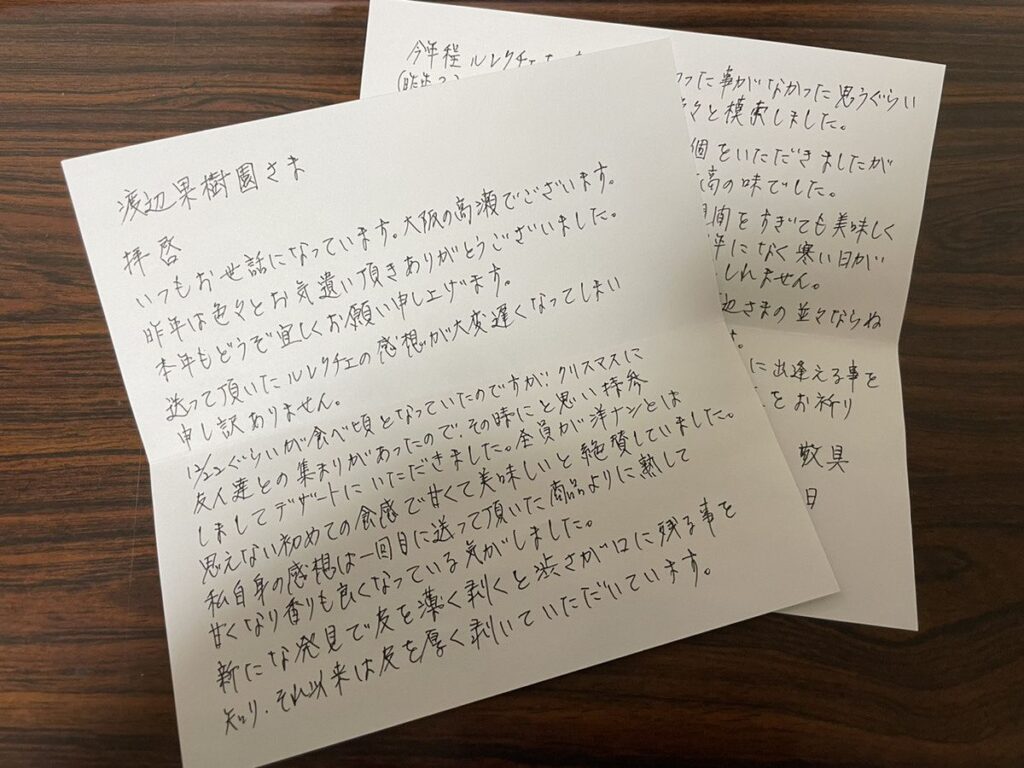 渡辺果樹園さま
拝啓
いつもお世話になっています。大阪の高瀬でございます。
昨年は色々とお気遣い頂きありがとうございました。
本年もどうぞ宜しくお願い申し上げます。
送って頂いたルレクチェの感想が大変遅くなってしまい
申し訳ありません。
12/22ぐらいが食べ頃となっていたのですが、クリスマスに
友人達との集まりがあったので、その時にと思い持参
しましてデザートにいただきました。全員が洋ナシとは
思えない初めての食感で甘くて美味しいと絶賛していました。
私自身の感想は一回目に送って頂いた商品よりに熟して
甘くなり香りも良くなっている気がしました。
新たな発見で皮を薄く剥くと渋さが口に残る事を
知り、それ以来は皮を厚く剥いていただいています。
今年程ルレクチェ
った事がなかった思うぐらい
々と模索しました。
個をいただきましたが
高の味でした。
間をすぎても美味しく
年になく寒い日が
しれません。
辺さまの並々ならぬ
す。
に出逢える事を
をお祈り
敬具
日